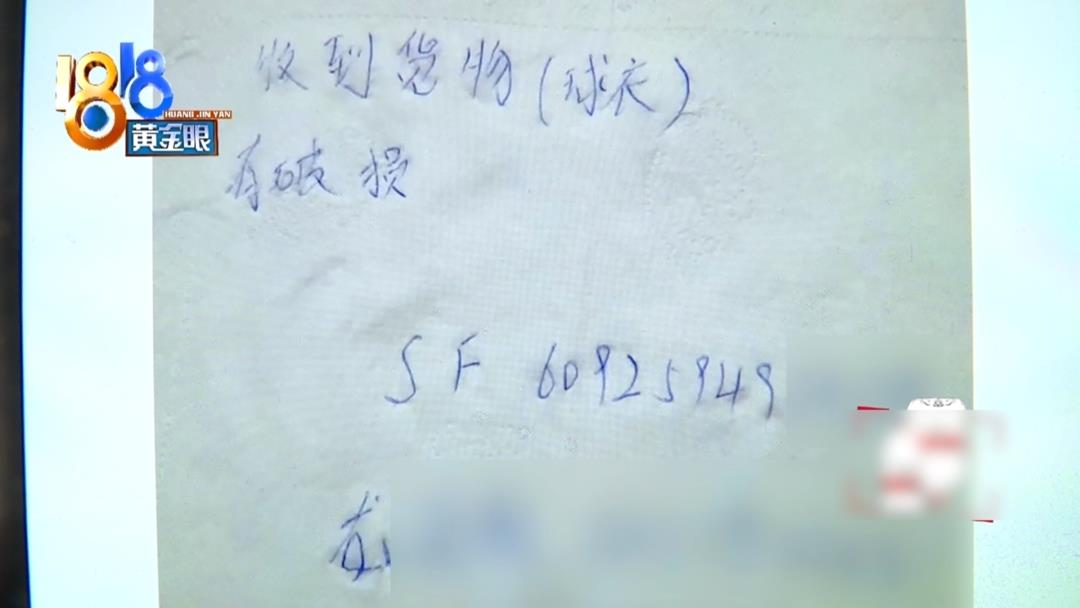 1818
HUANG JIN YAN
黄金眼
收到货物(球衣)
有破损
SF 60925949